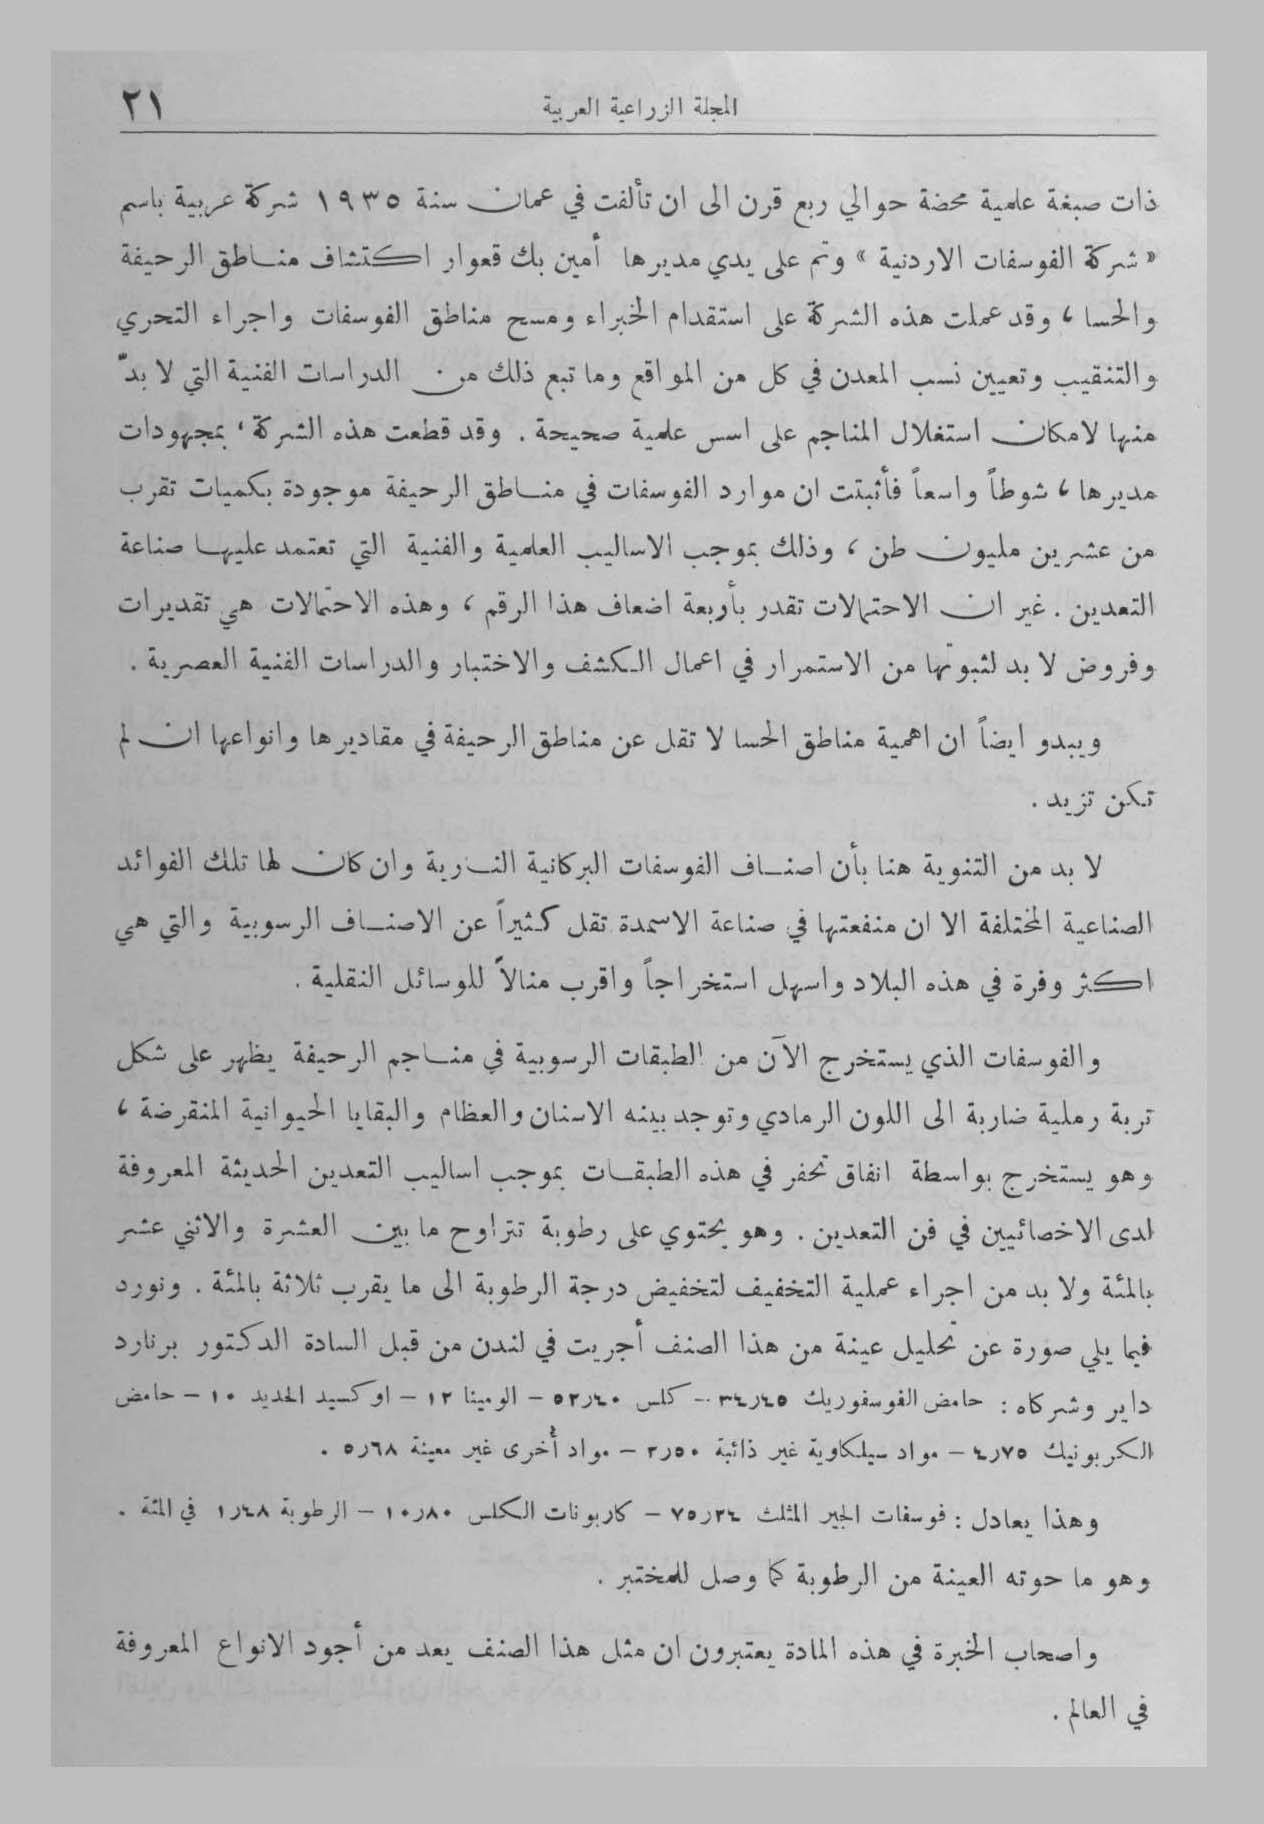 المجلة الزراعية العربية ٢١
ذات صبغة علمية محضة حوالي ربع قرن الى ان تألفت في عمان سنة ١٩٣٥ شركة عربية باسم
« شركة الفوسفات الاردنية » وتم على يدي مديرها أمين بك قعوار اكتشاف مناطق الرحيفة
والحسا ، وقد عملت هذه الشركة على استقدام الخبراء ومسح مناطق الفوسفات واجراء التحري
والتنقيب وتعيين نسب المعدن في كل من المواقع وما تبع ذلك من الدراسات الفنية التي لا بدّ
منها لامكان استغلال المناجم على اسس علمية صحيحة . وقد قطعت هذه الشركة ، بمجهودات
مديرها ، شوطاً واسعاً فأثبتت ان موارد الفوسفات في مناطق الرحيفة موجودة بكميات تقرب
من عشرين مليون طن ، وذلك بموجب الاساليب العلمية والفنية التي تعتمد عليها صناعة
التعدين . غير ان الاحتمالات تقدر بأربعة اضعاف هذا الرقم ، وهذه الاحتمالات هي تقديرات
وفروض لا بد لثبوتها من الاستمرار في اعمال الكشف والاختبار والدراسات الفنية العصرية .
ويبدو ايضاً ان اهمية مناطق الحسا لا تقل عن مناطق الرحيفة في مقاديرها وانواعها ان لم
تكن تزيد .
لا بد من التنوية هنا بأن اصناف الفوسفات البركانية النارية وان كان لها تلك الفوائد
الصناعية المختلفة الا ان منفعتها في صناعة الاسمدة تقل كثيراً عن الاصناف الرسوبية والتي هي
اكثر وفرة في هذه البلاد واسهل استخراجاً واقرب منالاً للوسائل النقلية .
والفوسفات الذي يستخرج الآن من الطبقات الرسوبية في مناجم الرحيفة يظهر على شكل
تربة رملية ضاربة الى اللون الرمادي وتوجد بينه الاسنان والعظام والبقايا الحيوانية المنقرضة ،
وهو يستخرج بواسطة انفاق تحفر في هذه الطبقات بموجب اساليب التعدين الحديثة المعروفة
لدى الاخصائيين في فن التعدين . وهو يحتوي على رطوبة تتراوح ما بين العشرة والاثني عشر
بالمئة ولا بد من اجراء عملية التخفيف لتخفيض درجة الرطوبة الى ما يقرب ثلاثة بالمئة . ونورد
فيما يلي صورة عن تحليل عينة من هذا الصنف أجريت في لندن من قبل السادة الدكتور برنارد
داير وشركاه : حامض الفوسفوريك ٣٤٫٤٥ – كلس ٥٢٫٤٠ – الومينا ١٢ – اوكسيد الحديد ١٠ – حامض
الكربونيك ٤٫٧٥ – مواد سيلكاوية غير ذائبة ٢٫٥٠ – مواد أخرى غير معينة ٥٫٦٨ .
وهذا يعادل : فوسفات الجير المثلث ٧٥٫٣٤ – كاربونات الكلس ١٠٫٨٠ – الرطوبة ١٫٤٨ في المئة .
وهو ما حوته العينة من الرطوبة كما وصل للمختبر .
واصحاب الخبرة في هذه المادة يعتبرون ان مثل هذا الصنف يعد من أجود الانواع المعروفة
في العالم .